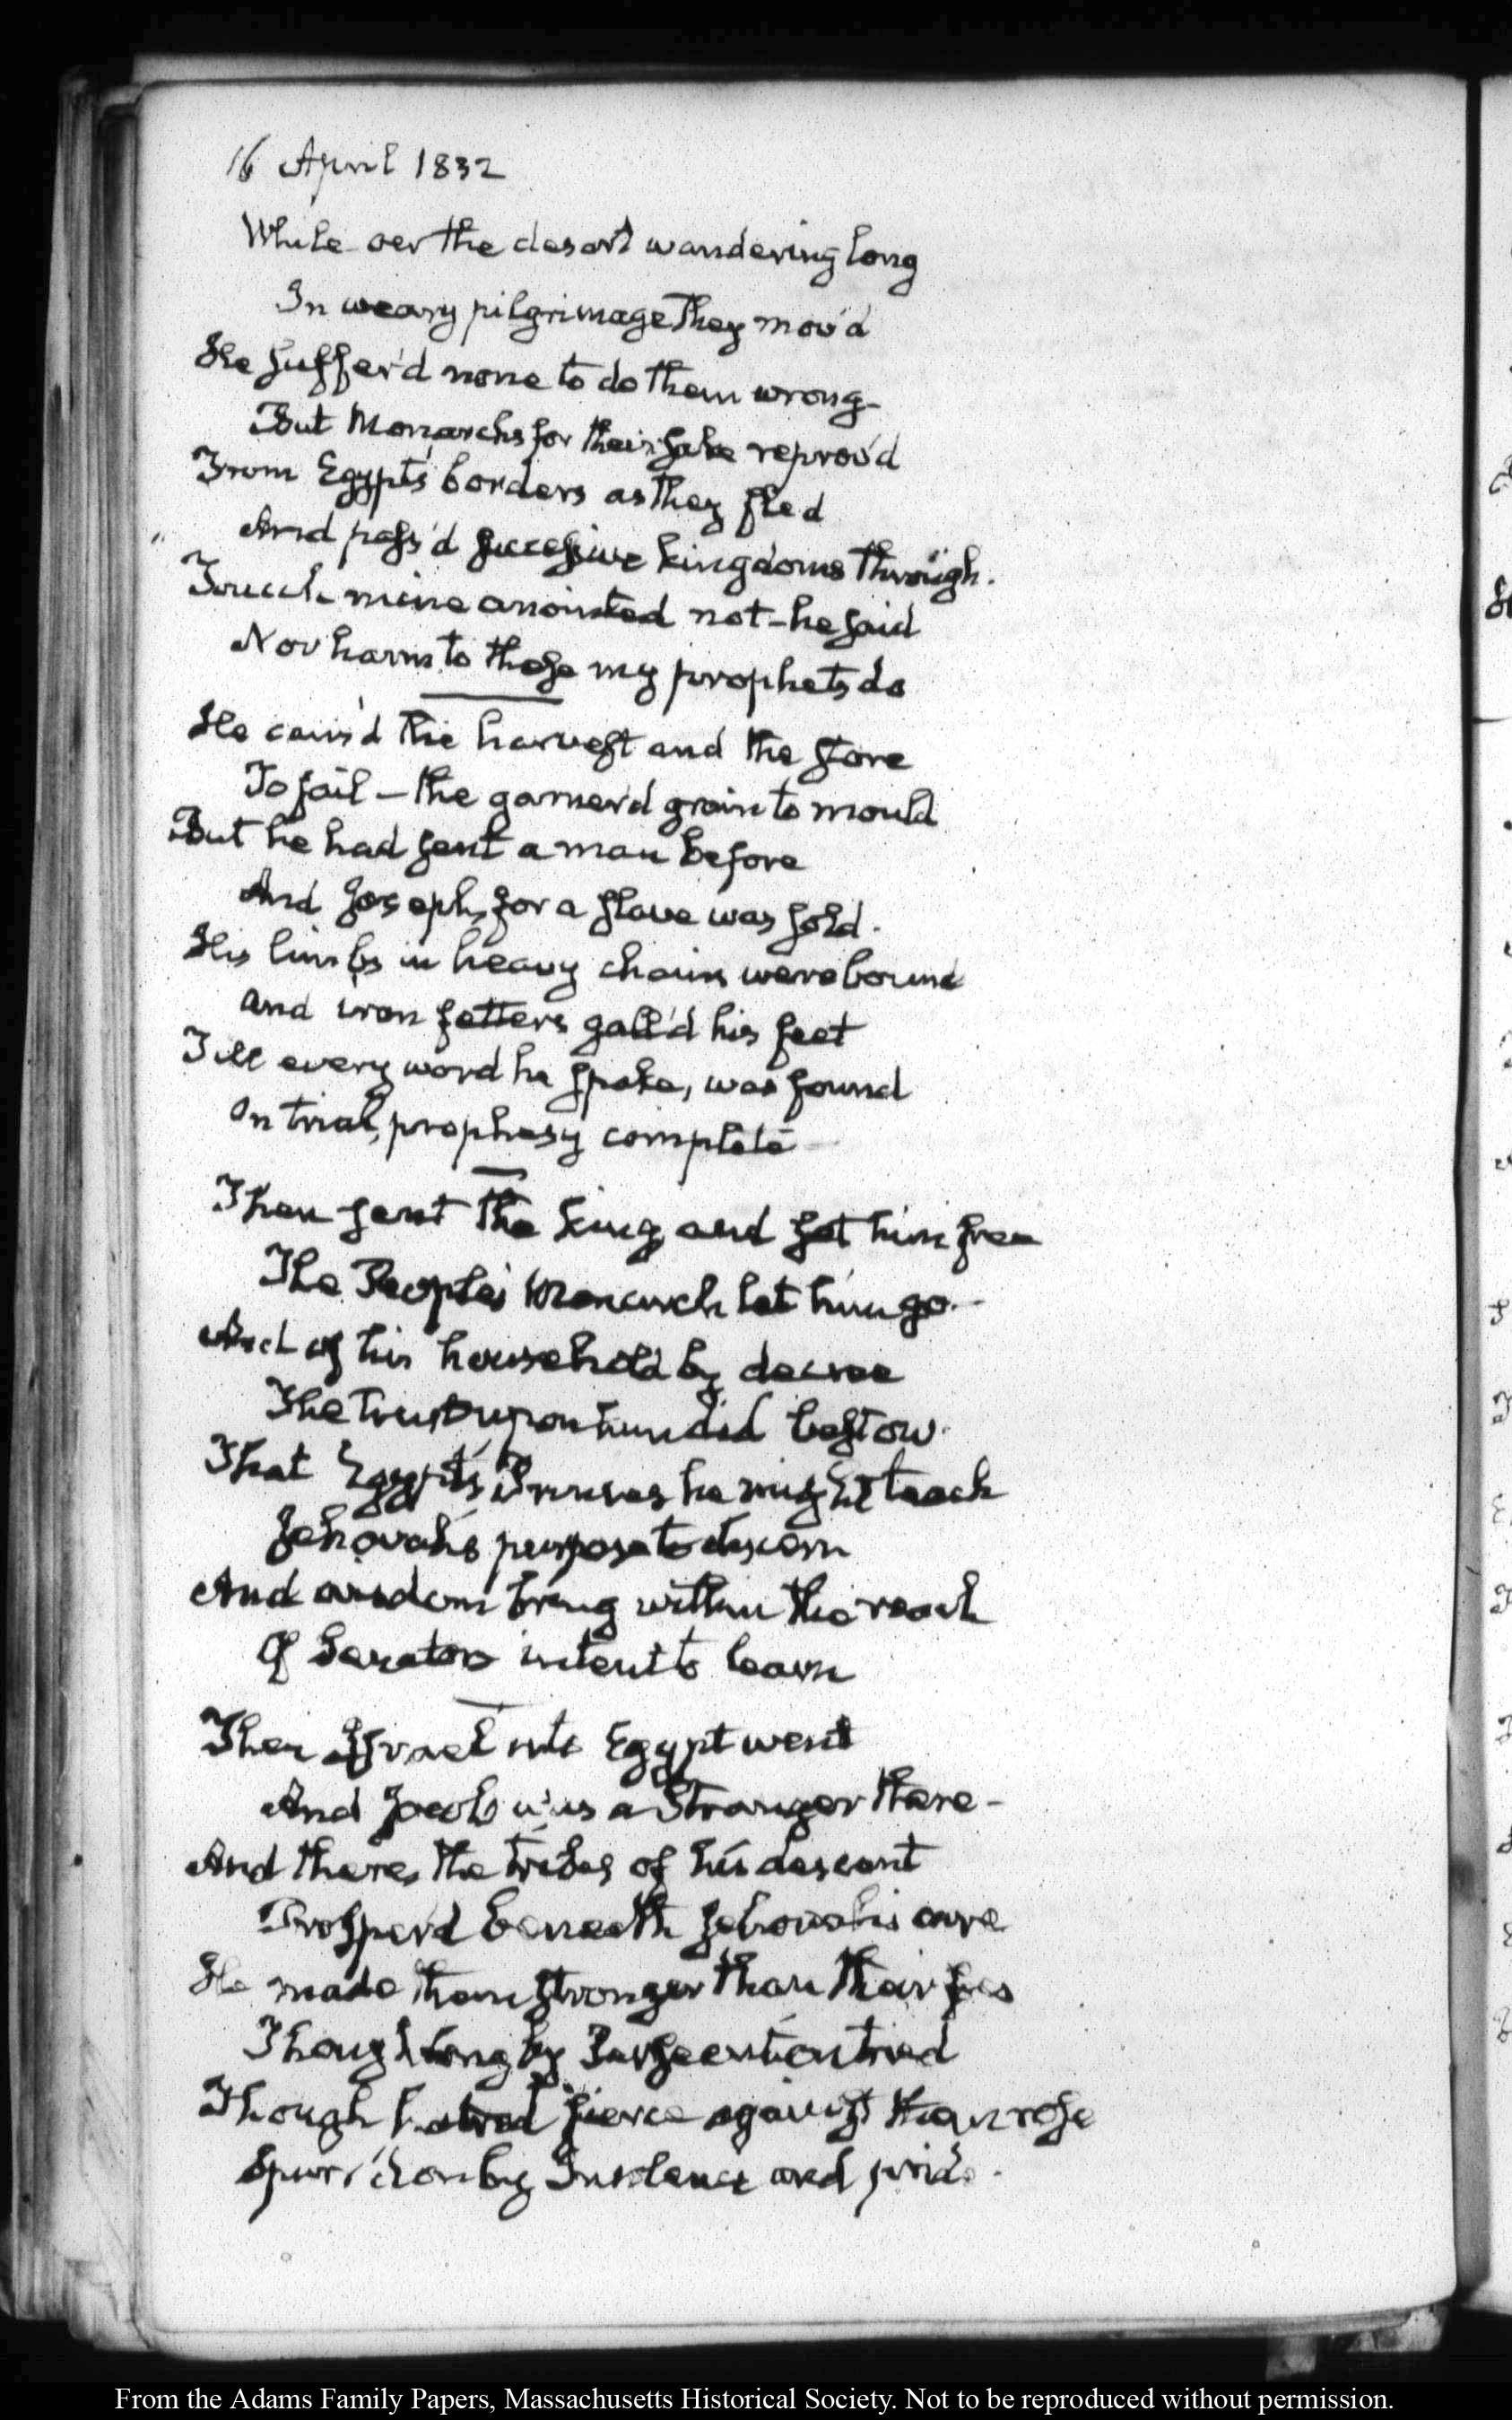 16 April 1832
While oer the desart wandering long
In weary pilgrimage they mov'd
He suffer'd none to do them wrong
But Monarchs for their sake reprov'd
From Egypt's borders as they fled
And pass'd successive kingdoms through.
Touch mine anointed not – he said
Nor harm to these my prophets do
He caus'd the harvest and the store
To fail – the garner'd grain to mould
But he had sent a man before
And Joseph, for a slave was sold.
His limbs in heavy chains were bound
and iron fetters gall'd his feet
Till every word he spoke, was found
On trial, prophesy complete
Then sent the king and set him free
The People's Monarch let him go.
And of his household by decree
The trust upon him did bestow.
That Egypt's Princes he might teach
Jehovah's purpose to discern
And wisdom bring within the reach
Of Senators intent to learn
Then Israel into Egypt went
And Jacob was a Stranger there –
And there, the tribes of his descent
Prosper'd beneath Jehovah's care
He made them stronger than their foes
Though long by Persecution tried
Though hatred fierce against them rose
Spurr'd on by Insolence and pride.
From the Adams Family Papers, Massachusetts Historical Society. Not to be reproduced without permission.